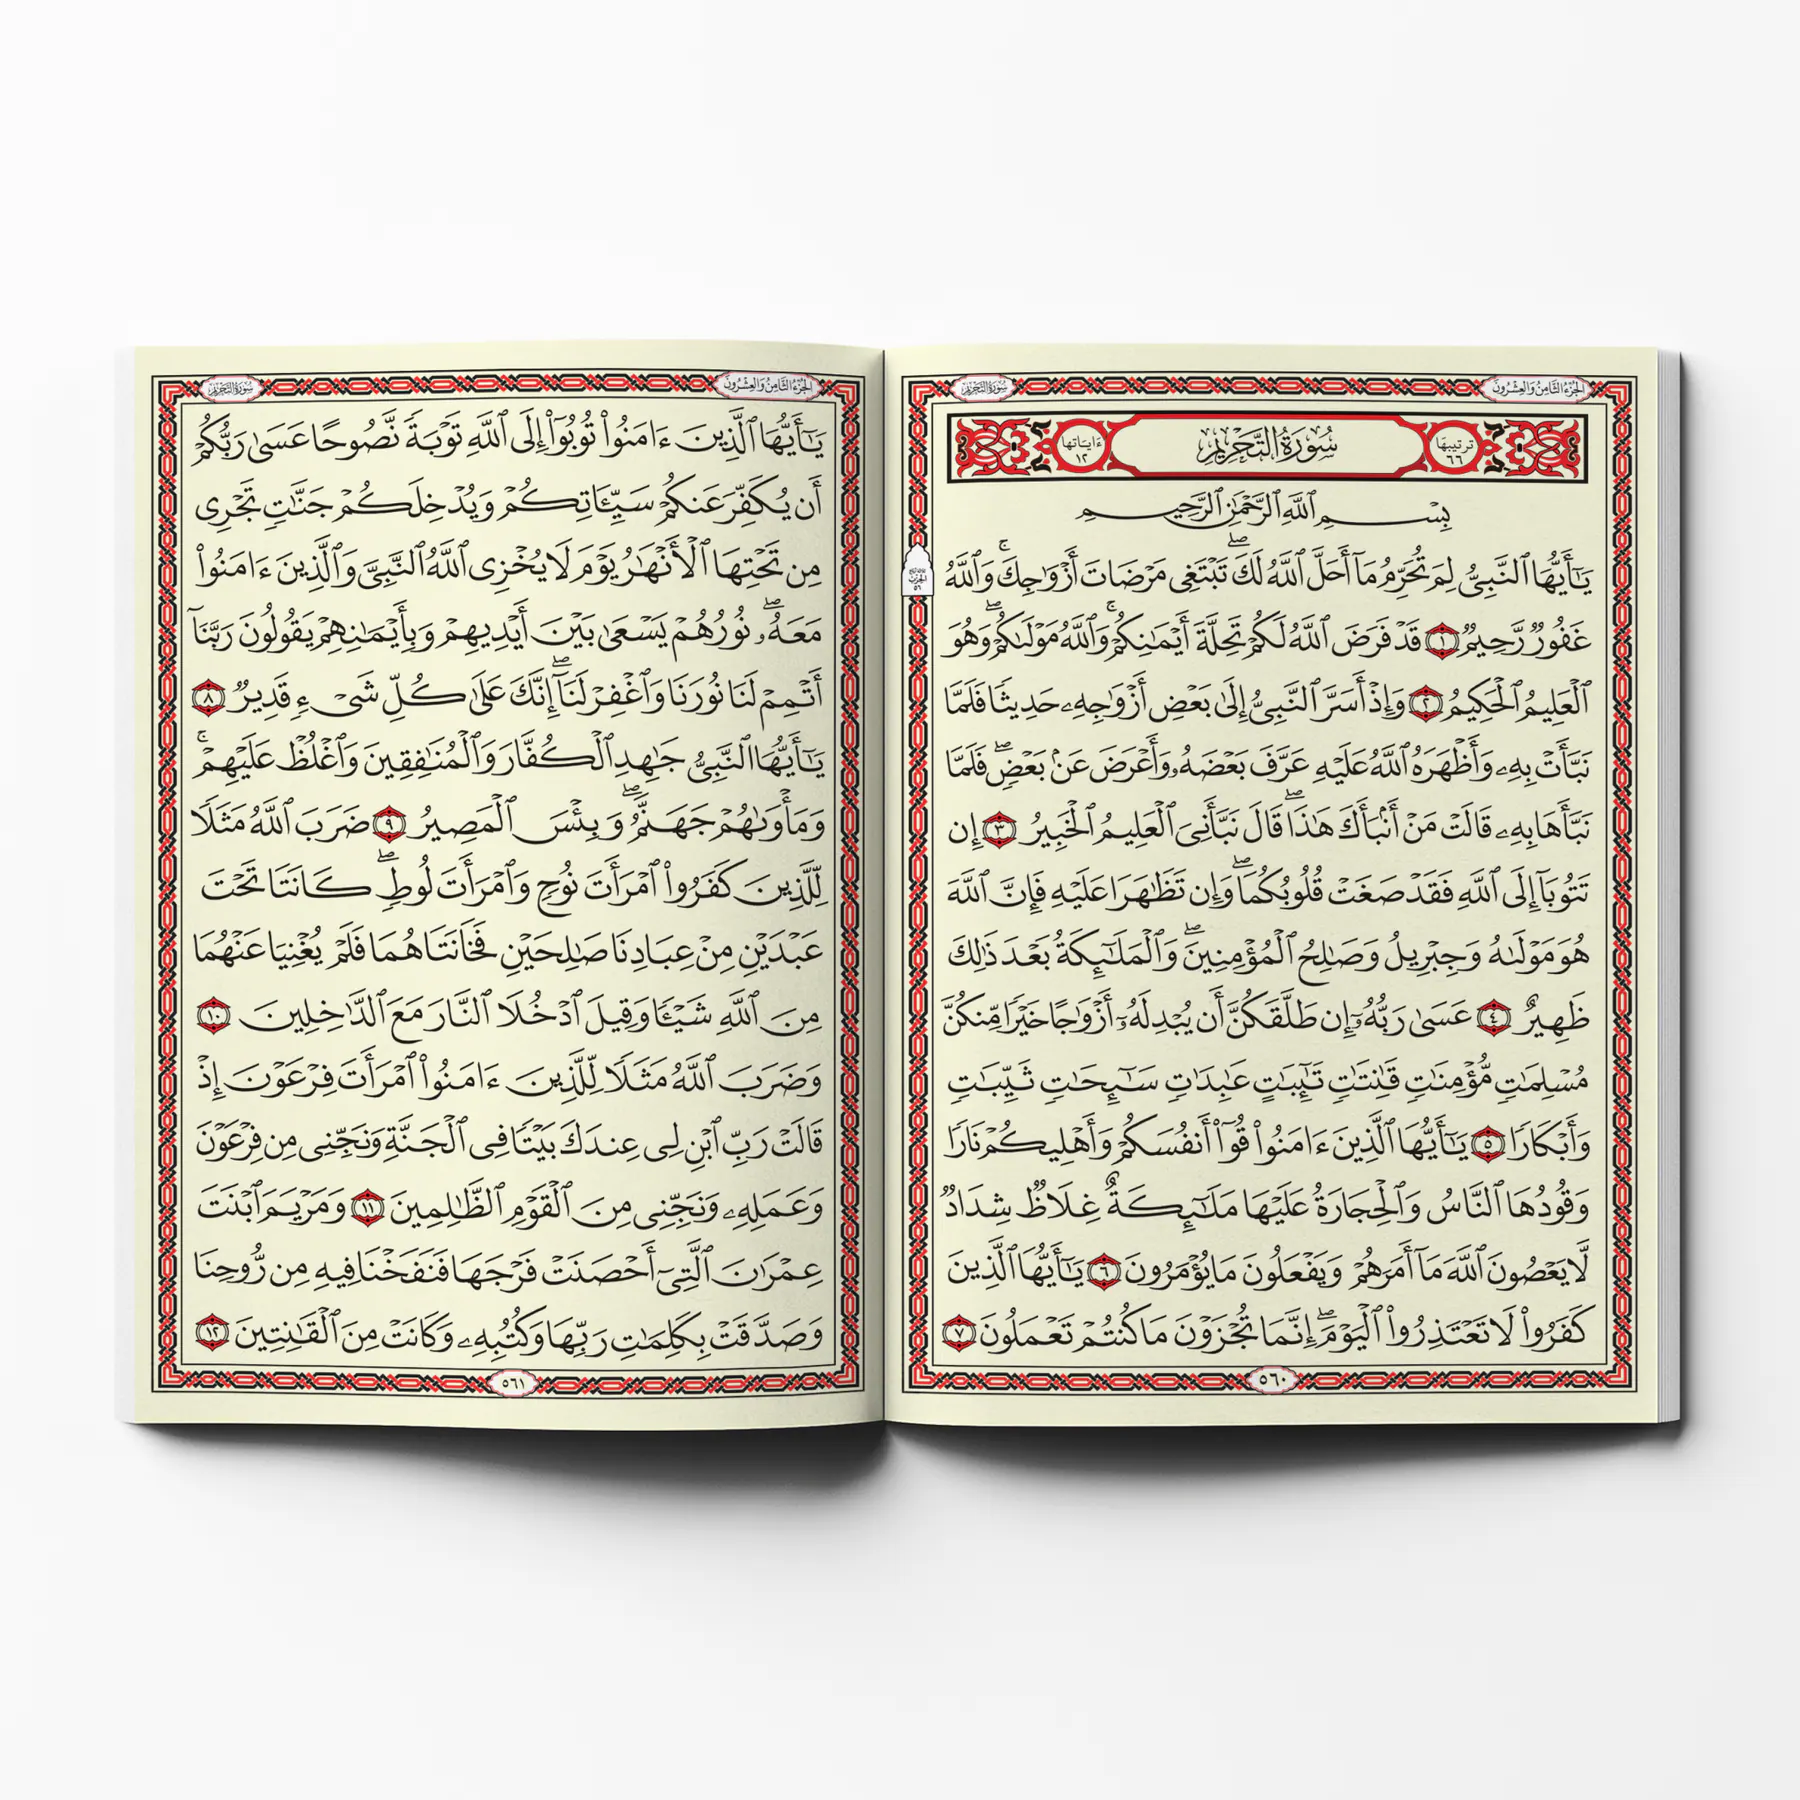 الجزء الثامن والعشرون
سورة التحريم
ترتيبها ٦٦
سُورَةُ التَّحْرِيمِ
ءاياتها ١٢
بِسْمِ ٱللَّهِ ٱلرَّحْمَٰنِ ٱلرَّحِيمِ
يَٰٓأَيُّهَا ٱلنَّبِىُّ لِمَ تُحَرِّمُ مَآ أَحَلَّ ٱللَّهُ لَكَ ۖ تَبْتَغِى مَرْضَاتَ أَزْوَٰجِكَ ۚ وَٱللَّهُ
غَفُورٌ رَّحِيمٌ ١ قَدْ فَرَضَ ٱللَّهُ لَكُمْ تَحِلَّةَ أَيْمَٰنِكُمْ ۚ وَٱللَّهُ مَوْلَىٰكُمْ ۖ وَهُوَ
ٱلْعَلِيمُ ٱلْحَكِيمُ ٢ وَإِذْ أَسَرَّ ٱلنَّبِىُّ إِلَىٰ بَعْضِ أَزْوَٰجِهِۦ حَدِيثًا فَلَمَّا
نَبَّأَتْ بِهِۦ وَأَظْهَرَهُ ٱللَّهُ عَلَيْهِ عَرَّفَ بَعْضَهُۥ وَأَعْرَضَ عَنۢ بَعْضٍ ۖ فَلَمَّا
نَبَّأَهَا بِهِۦ قَالَتْ مَنْ أَنۢبَأَكَ هَٰذَا ۖ قَالَ نَبَّأَنِىَ ٱلْعَلِيمُ ٱلْخَبِيرُ ٣ إِن
تَتُوبَآ إِلَى ٱللَّهِ فَقَدْ صَغَتْ قُلُوبُكُمَا ۖ وَإِن تَظَٰهَرَا عَلَيْهِ فَإِنَّ ٱللَّهَ
هُوَ مَوْلَىٰهُ وَجِبْرِيلُ وَصَٰلِحُ ٱلْمُؤْمِنِينَ ۖ وَٱلْمَلَٰٓئِكَةُ بَعْدَ ذَٰلِكَ
ظَهِيرٌ ٤ عَسَىٰ رَبُّهُۥٓ إِن طَلَّقَكُنَّ أَن يُبْدِلَهُۥٓ أَزْوَٰجًا خَيْرًا مِّنكُنَّ
مُسْلِمَٰتٍ مُّؤْمِنَٰتٍ قَٰنِتَٰتٍ تَٰٓئِبَٰتٍ عَٰبِدَٰتٍ سَٰٓئِحَٰتٍ ثَيِّبَٰتٍ
وَأَبْكَارًا ٥ يَٰٓأَيُّهَا ٱلَّذِينَ ءَامَنُوا۟ قُوٓا۟ أَنفُسَكُمْ وَأَهْلِيكُمْ نَارًا
وَقُودُهَا ٱلنَّاسُ وَٱلْحِجَارَةُ عَلَيْهَا مَلَٰٓئِكَةٌ غِلَاظٌ شِدَادٌ
لَّا يَعْصُونَ ٱللَّهَ مَآ أَمَرَهُمْ وَيَفْعَلُونَ مَا يُؤْمَرُونَ ٦ يَٰٓأَيُّهَا ٱلَّذِينَ
كَفَرُوا۟ لَا تَعْتَذِرُوا۟ ٱلْيَوْمَ ۖ إِنَّمَا تُجْزَوْنَ مَا كُنتُمْ تَعْمَلُونَ ٧
٥٦٠
الحزب ٥٦
الجزء الثامن والعشرون
سورة التحريم
يَٰٓأَيُّهَا ٱلَّذِينَ ءَامَنُوا۟ تُوبُوٓا۟ إِلَى ٱللَّهِ تَوْبَةً نَّصُوحًا عَسَىٰ رَبُّكُمْ
أَن يُكَفِّرَ عَنكُمْ سَيِّـَٔاتِكُمْ وَيُدْخِلَكُمْ جَنَّٰتٍ تَجْرِى
مِن تَحْتِهَا ٱلْأَنْهَٰرُ يَوْمَ لَا يُخْزِى ٱللَّهُ ٱلنَّبِىَّ وَٱلَّذِينَ ءَامَنُوا۟
مَعَهُۥ ۖ نُورُهُمْ يَسْعَىٰ بَيْنَ أَيْدِيهِمْ وَبِأَيْمَٰنِهِمْ يَقُولُونَ رَبَّنَآ
أَتْمِمْ لَنَا نُورَنَا وَٱغْفِرْ لَنَآ ۖ إِنَّكَ عَلَىٰ كُلِّ شَىْءٍ قَدِيرٌ ٨
يَٰٓأَيُّهَا ٱلنَّبِىُّ جَٰهِدِ ٱلْكُفَّارَ وَٱلْمُنَٰفِقِينَ وَٱغْلُظْ عَلَيْهِمْ ۚ
وَمَأْوَىٰهُمْ جَهَنَّمُ ۖ وَبِئْسَ ٱلْمَصِيرُ ٩ ضَرَبَ ٱللَّهُ مَثَلًا
لِّلَّذِينَ كَفَرُوا۟ ٱمْرَأَتَ نُوحٍ وَٱمْرَأَتَ لُوطٍ ۖ كَانَتَا تَحْتَ
عَبْدَيْنِ مِنْ عِبَادِنَا صَٰلِحَيْنِ فَخَانَتَاهُمَا فَلَمْ يُغْنِيَا عَنْهُمَا
مِنَ ٱللَّهِ شَيْـًٔا وَقِيلَ ٱدْخُلَا ٱلنَّارَ مَعَ ٱلدَّٰخِلِينَ ١٠
وَضَرَبَ ٱللَّهُ مَثَلًا لِّلَّذِينَ ءَامَنُوا۟ ٱمْرَأَتَ فِرْعَوْنَ إِذْ
قَالَتْ رَبِّ ٱبْنِ لِى عِندَكَ بَيْتًا فِى ٱلْجَنَّةِ وَنَجِّنِى مِن فِرْعَوْنَ
وَعَمَلِهِۦ وَنَجِّنِى مِنَ ٱلْقَوْمِ ٱلظَّٰلِمِينَ ١١ وَمَرْيَمَ ٱبْنَتَ
عِمْرَٰنَ ٱلَّتِىٓ أَحْصَنَتْ فَرْجَهَا فَنَفَخْنَا فِيهِ مِن رُّوحِنَا
وَصَدَّقَتْ بِكَلِمَٰتِ رَبِّهَا وَكُتُبِهِۦ وَكَانَتْ مِنَ ٱلْقَٰنِتِينَ ١٢
٥٦١